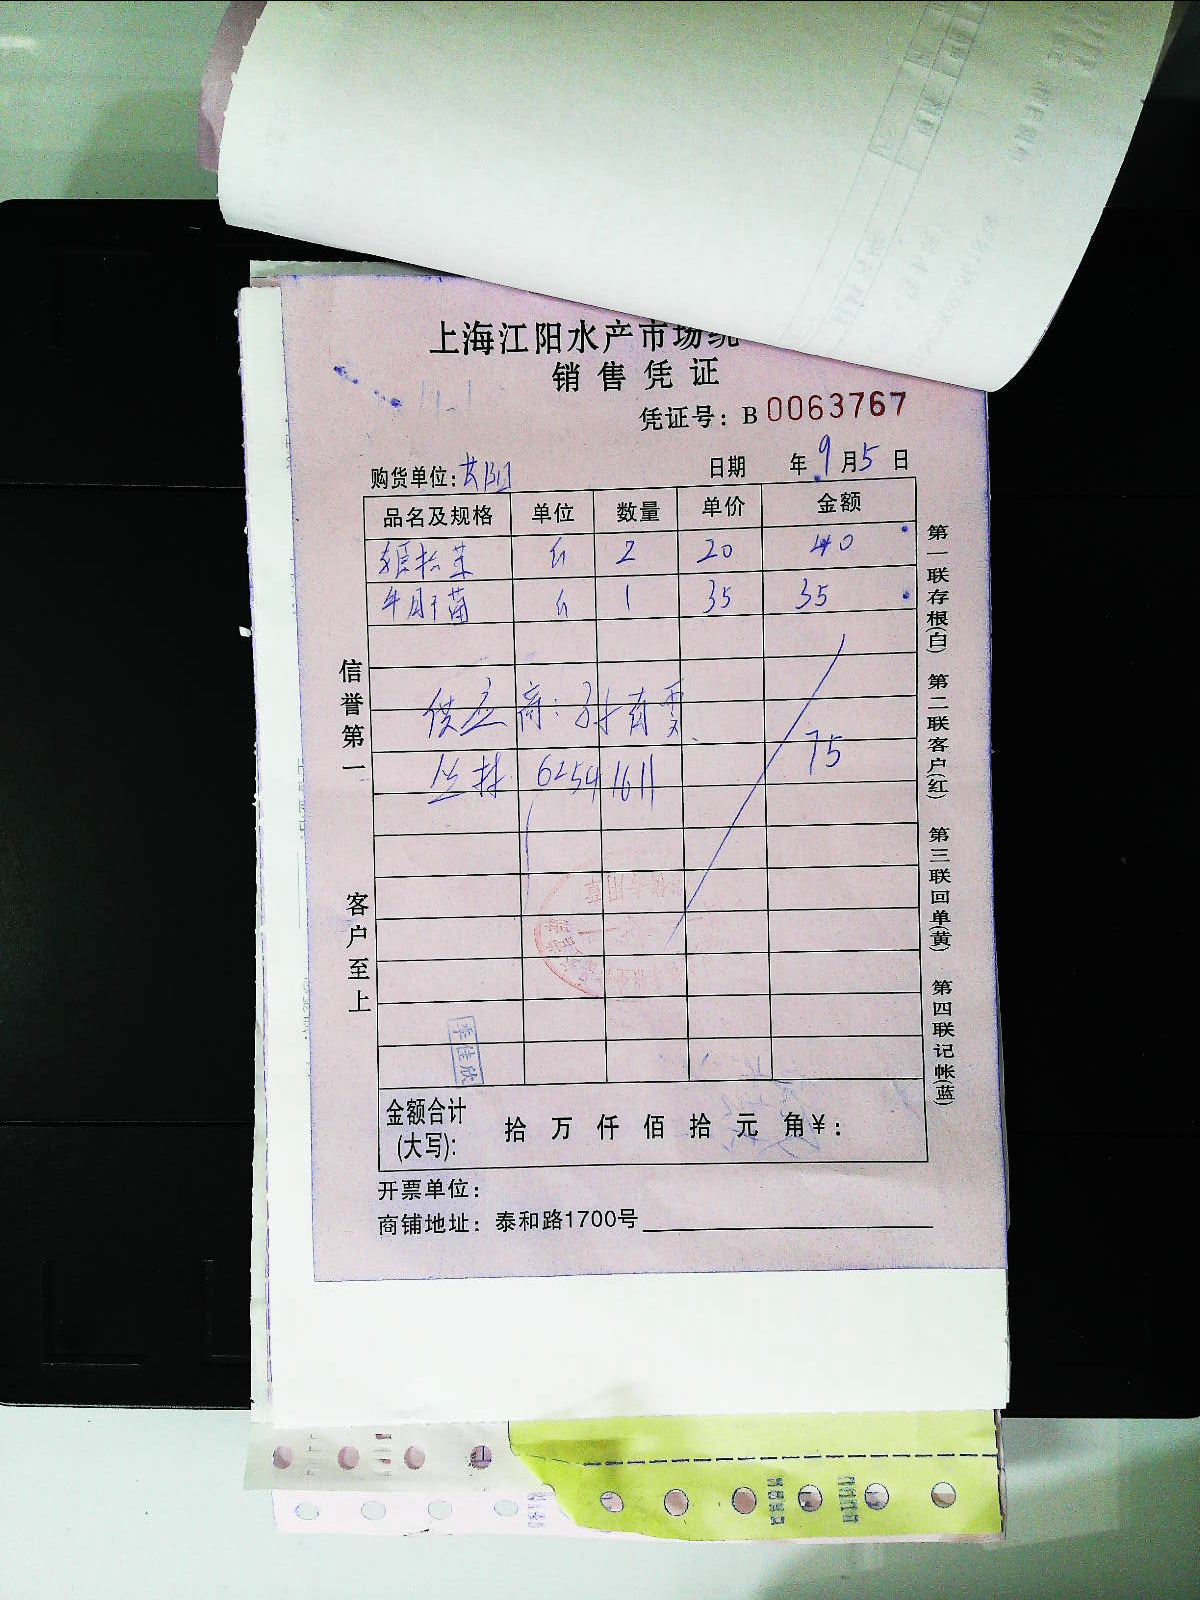 上海江阳水产市场统
销售凭证
凭证号：B 0063767
购货单位: 日期 年 9 月 5 日
品名及规格 单位 数量 单价 金额
姬松茸 2 20 40
牛肝菌 1 35 35
供应商：孙
丛林 62541611 75
信誉第一
客户至上
第一联存根(白) 第二联客户(红) 第三联回单(黄) 第四联记帐(蓝)
李佳欣
金额合计(大写): 拾 万 仟 佰 拾 元 角 ¥:
开票单位：
商铺地址：泰和路1700号